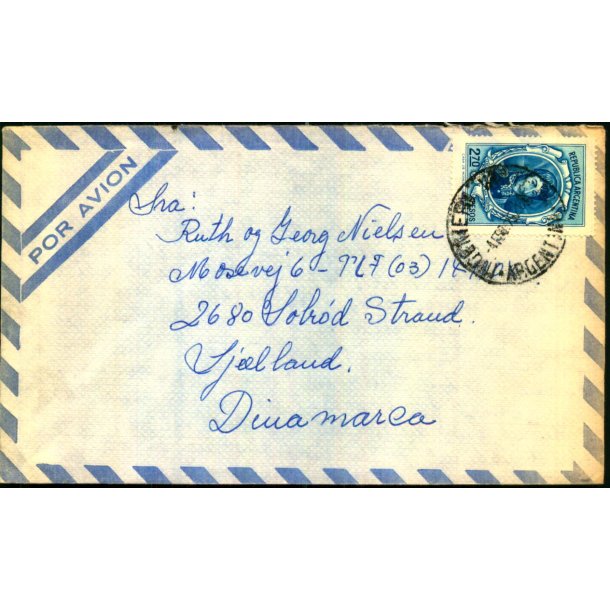 POR AVION
270
PESOS
REPUBLICA ARGENTINA
ARGENTINA
Sra:
Ruth og Georg Nielsen
Mosevej 6 - TLF (03) 14
2680 Solröd Strand.
Sjælland.
Dinamarca